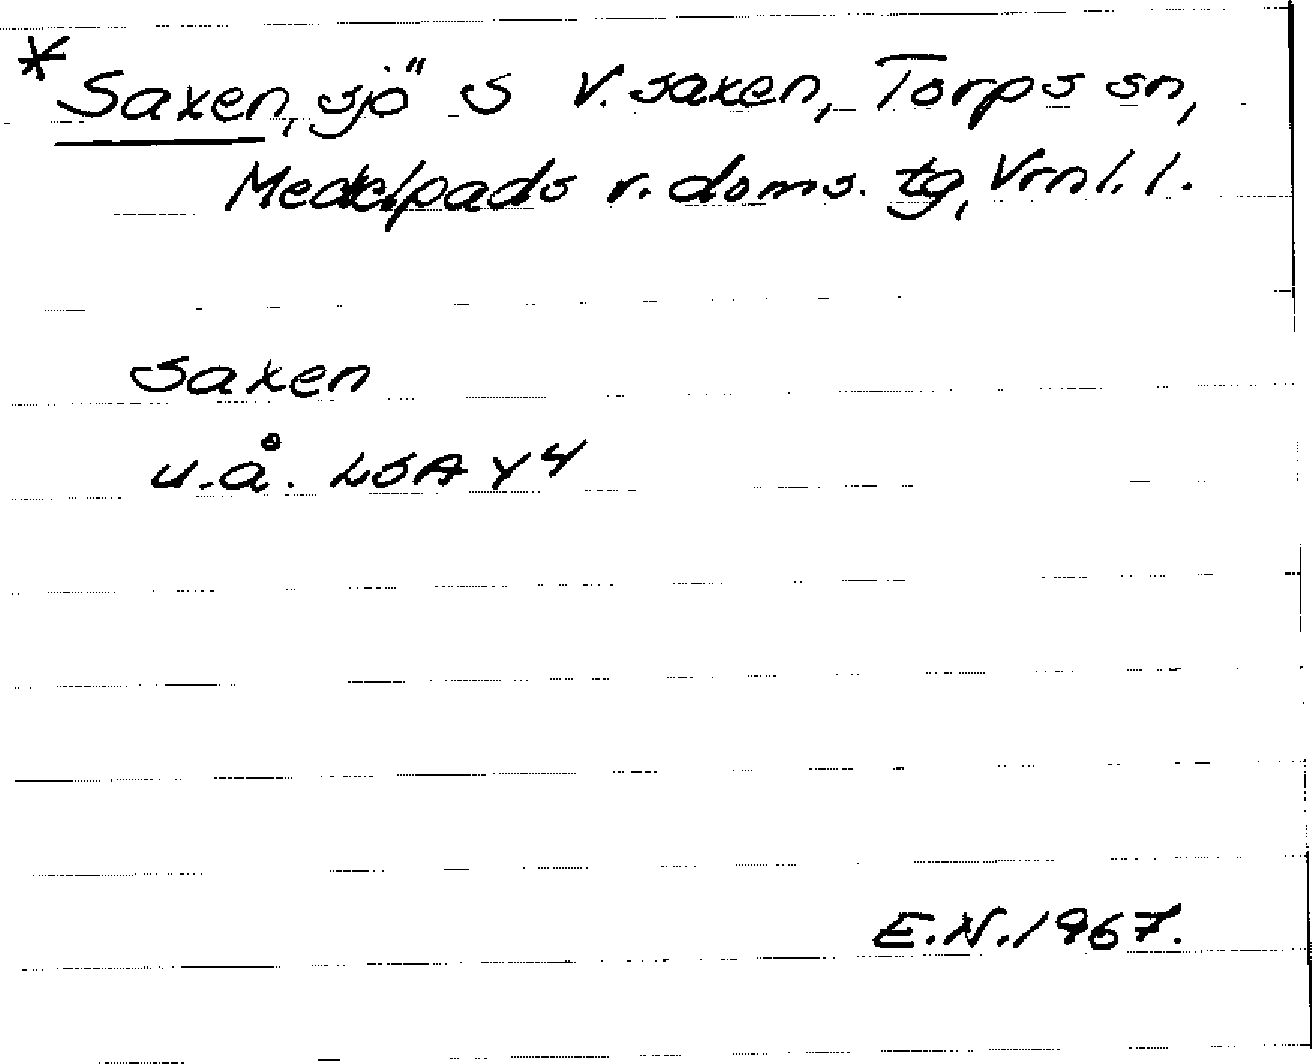 *Saxen, sjö" S V. saxen, Torps sn,
Medelpads v. doms. tg, Vrnl. l.
Saxen
u.å. LSA Y4
E.N. 1967.